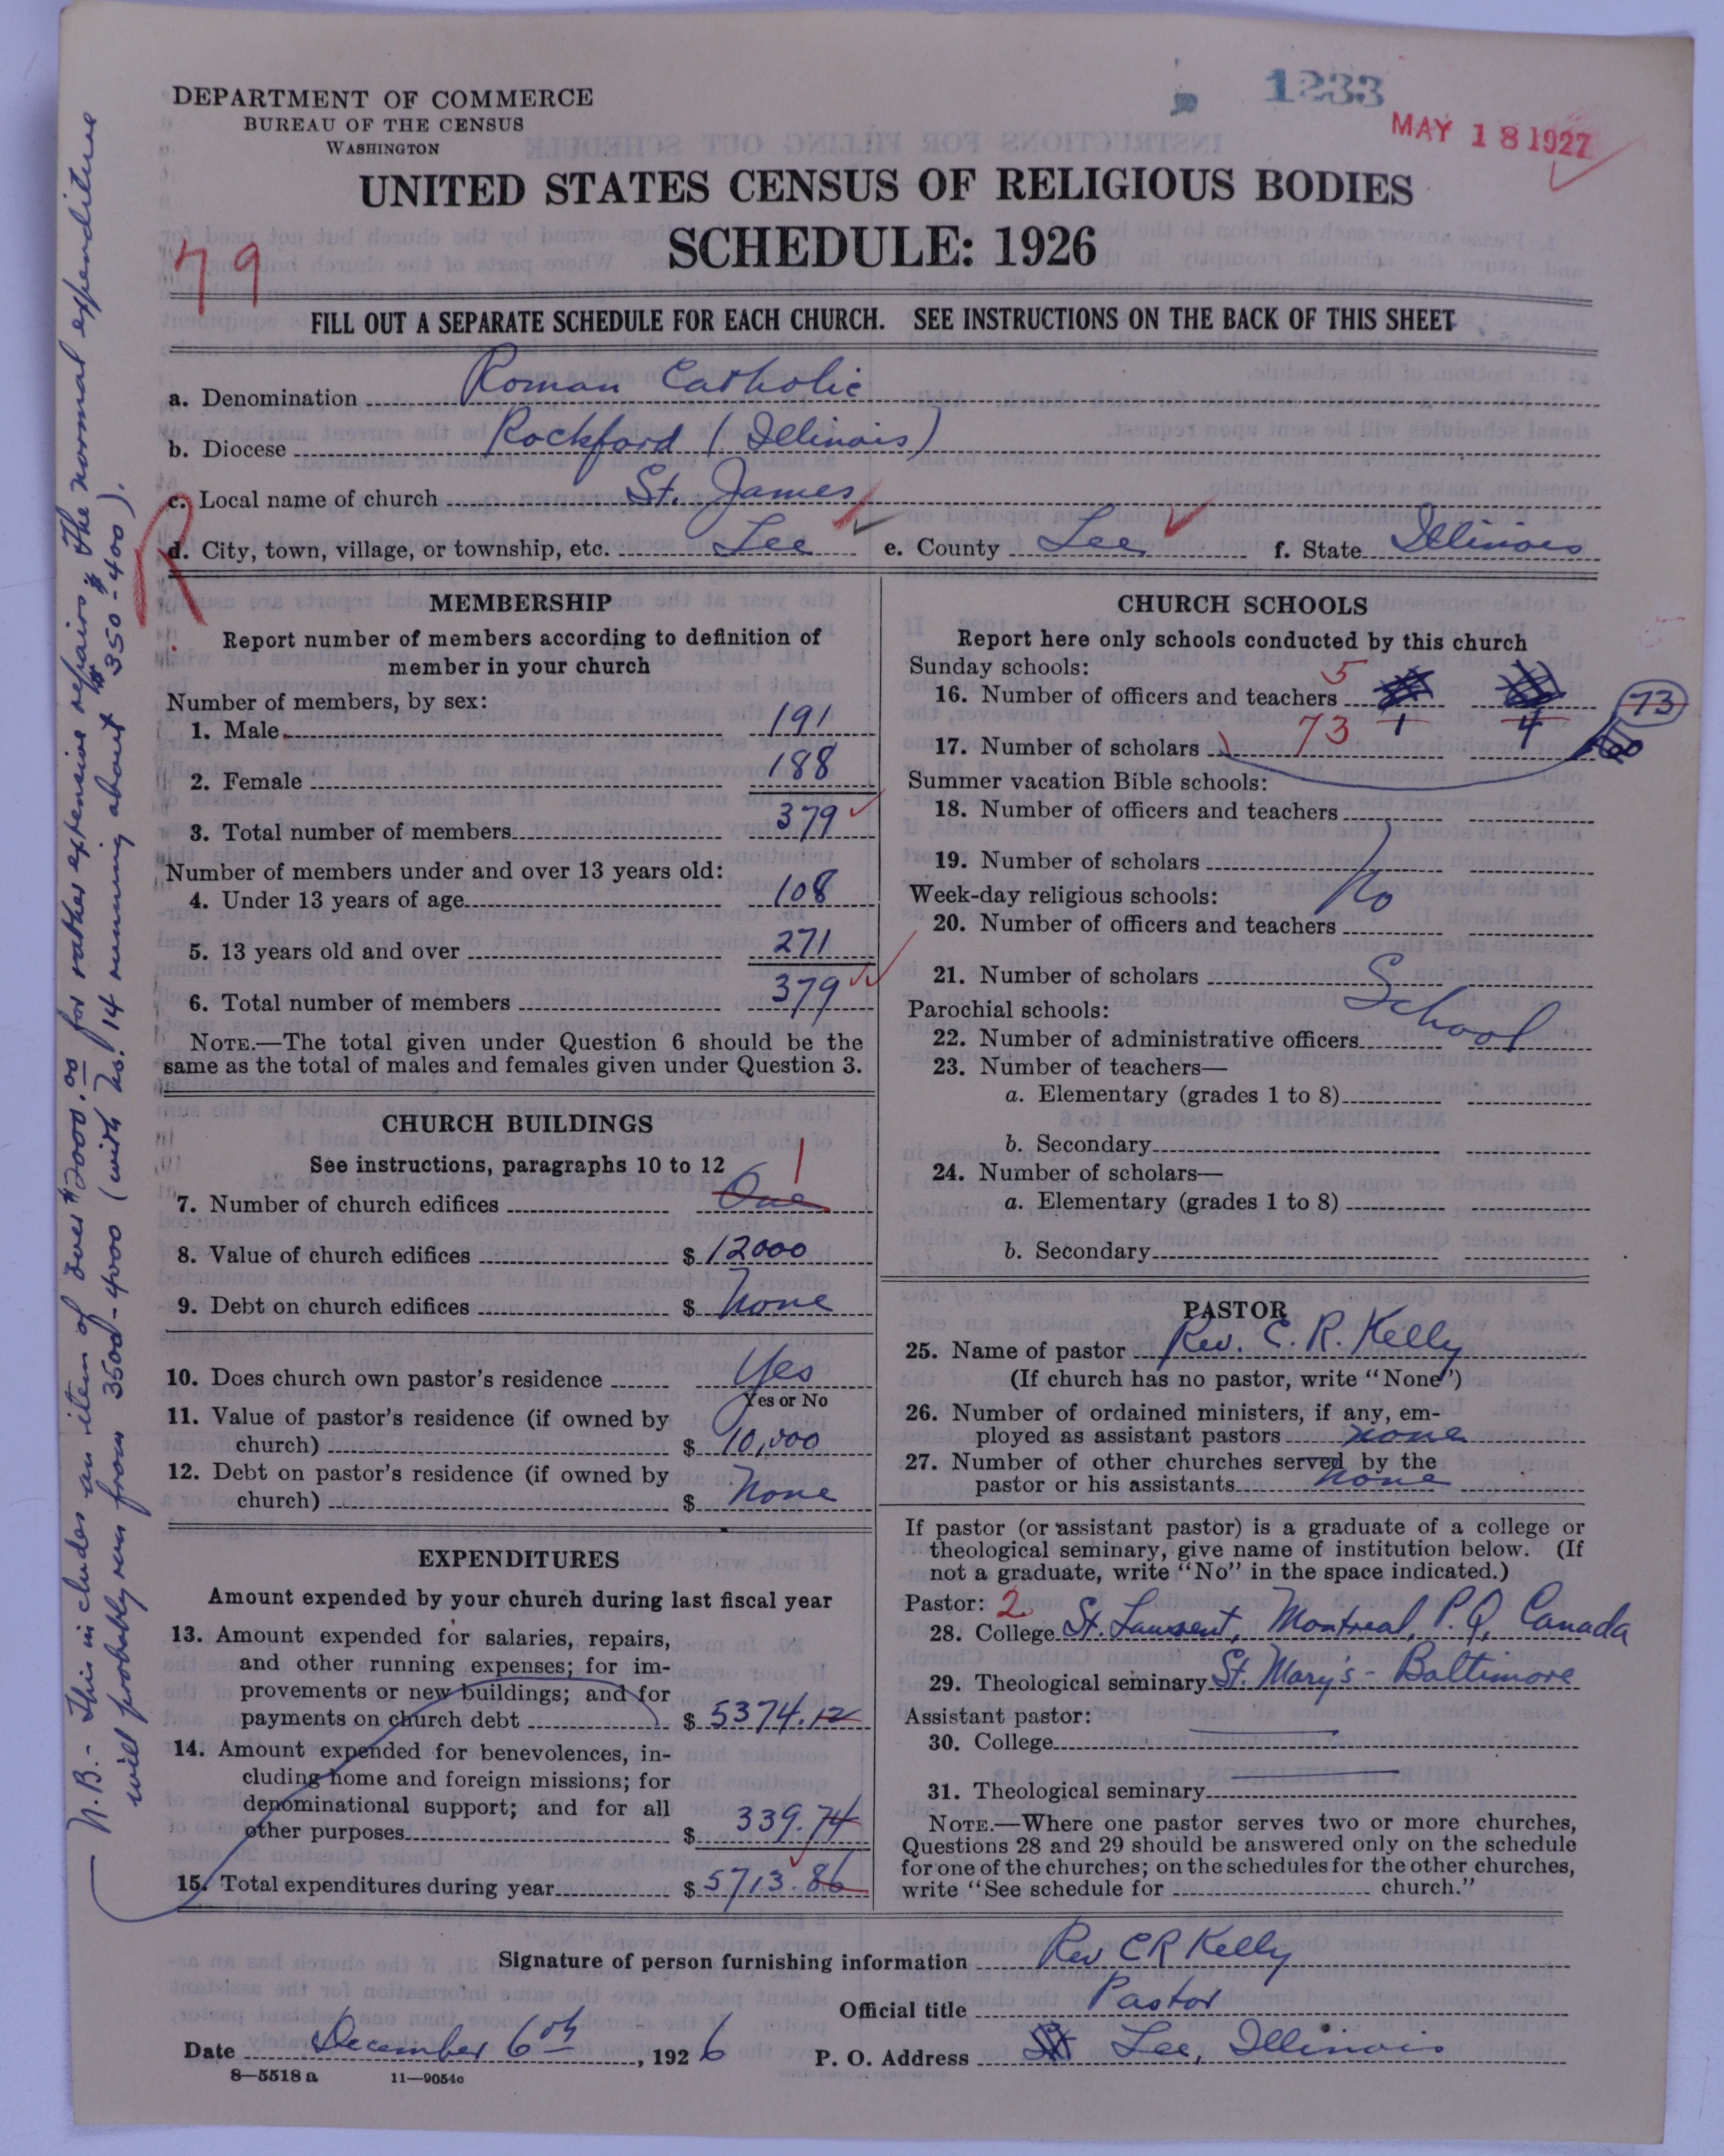 1233
MAY 18 1927
DEPARTMENT OF COMMERCE
BUREAU OF THE CENSUS
WASHINGTON
UNITED STATES CENSUS OF RELIGIOUS BODIES
SCHEDULE: 1926
79
FILL OUT A SEPARATE SCHEDULE FOR EACH CHURCH. SEE INSTRUCTIONS ON THE BACK OF THIS SHEET
a. Denomination Roman Catholic
b. Diocese Rockford (Illinois)
c. Local name of church St. James
d. City, town, village, or township, etc. Lee e. County Lee f. State Illinois
MEMBERSHIP
Report number of members according to definition of
member in your church
Number of members, by sex:
1. Male 191
2. Female 188
3. Total number of members 379
Number of members under and over 13 years old:
4. Under 13 years of age 108
5. 13 years old and over 271
6. Total number of members 379
NOTE.—The total given under Question 6 should be the
same as the total of males and females given under Question 3.
CHURCH BUILDINGS
See instructions, paragraphs 10 to 12
7. Number of church edifices One 1
8. Value of church edifices $ 12000
9. Debt on church edifices $ None
10. Does church own pastor's residence Yes
Yes or No
11. Value of pastor's residence (if owned by
church) $ 10,000
12. Debt on pastor's residence (if owned by
church) $ None
EXPENDITURES
Amount expended by your church during last fiscal year
13. Amount expended for salaries, repairs,
and other running expenses; for im-
provements or new buildings; and for
payments on church debt $ 5374.12
14. Amount expended for benevolences, in-
cluding home and foreign missions; for
denominational support; and for all
other purposes $ 339.74
15. Total expenditures during year $ 5713.86
CHURCH SCHOOLS
Report here only schools conducted by this church
Sunday schools:
16. Number of officers and teachers 5
1 4
17. Number of scholars 73 73
Summer vacation Bible schools:
18. Number of officers and teachers
19. Number of scholars No
Week-day religious schools:
20. Number of officers and teachers
21. Number of scholars School
Parochial schools:
22. Number of administrative officers
23. Number of teachers—
a. Elementary (grades 1 to 8)
b. Secondary
24. Number of scholars—
a. Elementary (grades 1 to 8)
b. Secondary
PASTOR
25. Name of pastor Rev. C. R. Kelly
(If church has no pastor, write "None")
26. Number of ordained ministers, if any, em-
ployed as assistant pastors none
27. Number of other churches served by the
pastor or his assistants none
If pastor (or assistant pastor) is a graduate of a college or
theological seminary, give name of institution below. (If
not a graduate, write "No" in the space indicated.)
Pastor: 2
28. College St. Laurent, Montreal, P.Q. Canada
29. Theological seminary St. Mary's - Baltimore
Assistant pastor:
30. College
31. Theological seminary
NOTE.—Where one pastor serves two or more churches,
Questions 28 and 29 should be answered only on the schedule
for one of the churches; on the schedules for the other churches,
write "See schedule for church."
Signature of person furnishing information Rev C R Kelly
Official title Pastor
Date December 6th, 1926 P. O. Address Lee, Illinois
8—5518 a 11—9054c
N.B.- This includes an item of over $2000.00 for rather expensive repairs; the normal expenditure
will probably run from 3500-4000 (with No. 14 running about $350-$400).